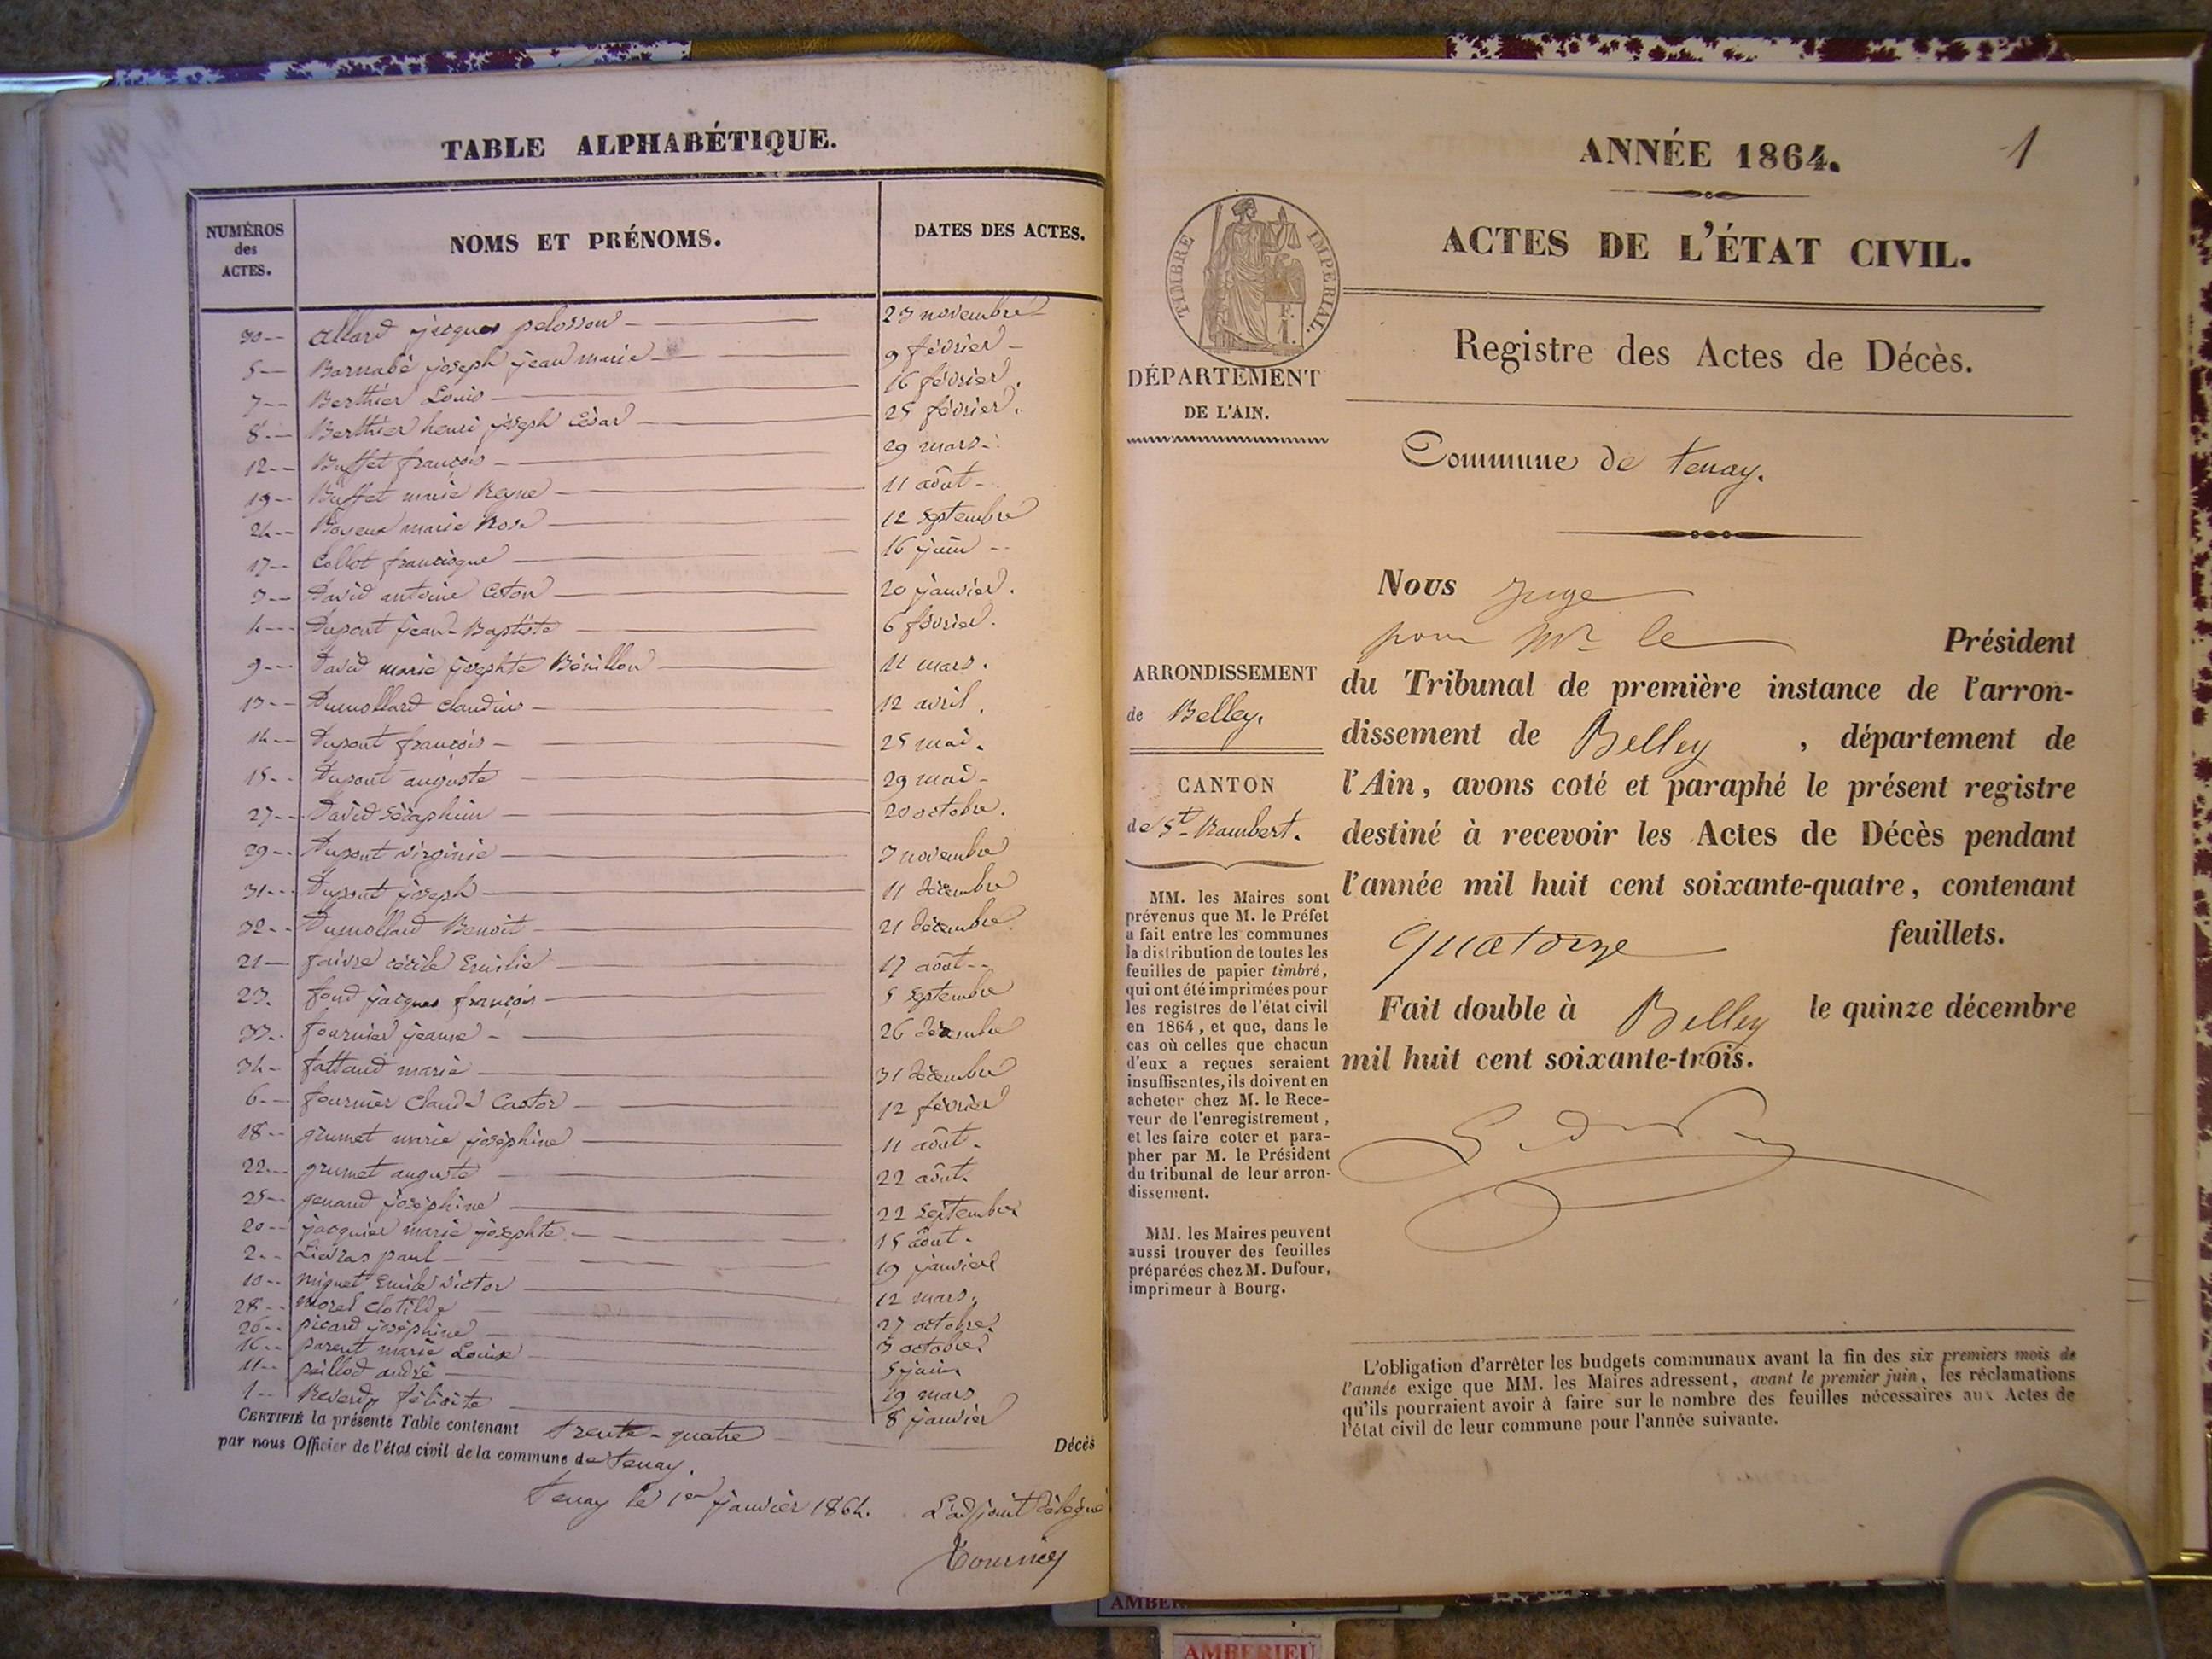 TABLE ALPHABÉTIQUE.
NUMÉROS des ACTES.
NOMS ET PRÉNOMS.
DATES DES ACTES.
30 Allard jacques pelosson 23 novembre
5 Barnabé joseph jean marie 9 février
7 Berthier Louis 16 février.
8 Berthier henri joseph César 25 février.
12 Buffet françois 29 mars
19 Buffet marie Reyne 11 août
24 Boyeux marie Rose 12 septembre
17 Collot francisque 16 juin
3 David antoine Coton 20 janvier.
4 Dupont jean-Baptiste 6 février.
9 David marie josephte Bévillon 11 mars.
13 Dumollard claudius 12 avril.
14 Dupont françois 25 mai.
15 Dupont auguste 29 mai
27 David séraphin 20 octobre.
29 Dupont virginie 3 novembre
31 Dupont joseph 11 décembre
32 Dumollard Benoit 21 décembre
21 faivre cécile Emilie 17 août
23. fond jacques françois 5 septembre
33 fournier jeanne 26 décembre
34 fattaud marie 31 décembre
6 fournier Claude Castor 12 février
18 grumet marie joséphine 11 août
22 grumet auguste 22 août.
25 genand joséphine 22 septembre
20 jacquier marie josephte 15 août
2 Lievras paul 19 janvier
10 miguet Emile victor 12 mars.
28 morel clotilde 27 octobre
26 picard joséphine 3 octobre
16 parent marie Louise 5 juin
11 peillod andré 19 mars
1 Reverdy félicité 8 janvier
CERTIFIÉ la présente Table contenant trente-quatre Décès
par nous Officier de l'état civil de la commune de tenay.
tenay le 1er janvier 1864. L'adjoint délégué
Tournier
1
ANNÉE 1864.
ACTES DE L'ÉTAT CIVIL.
Registre des Actes de Décès.
TIMBRE IMPÉRIAL.
DÉPARTEMENT
DE L'AIN.
Commune de tenay.
ARRONDISSEMENT
de Belley.
CANTON
de St Rambert.
MM. les Maires sont
prévenus que M. le Préfet
a fait entre les communes
la distribution de toutes les
feuilles de papier timbré,
qui ont été imprimées pour
les registres de l'état civil
en 1864, et que, dans le
cas où celles que chacun
d'eux a reçues seraient
insuffisantes, ils doivent en
acheter chez M. le Rece-
veur de l'enregistrement,
et les faire coter et para-
pher par M. le Président
du tribunal de leur arron-
dissement.
MM. les Maires peuvent
aussi trouver des feuilles
préparées chez M. Dufour,
imprimeur à Bourg.
Nous juge
pour Mr le Président
du Tribunal de première instance de l'arron-
dissement de Belley, département de
l'Ain, avons coté et paraphé le présent registre
destiné à recevoir les Actes de Décès pendant
l'année mil huit cent soixante-quatre, contenant
quatorze feuillets.
Fait double à Belley le quinze décembre
mil huit cent soixante-trois.
L'obligation d'arrêter les budgets communaux avant la fin des six premiers mois de
l'année exige que MM. les Maires adressent, avant le premier juin, les réclamations
qu'ils pourraient avoir à faire sur le nombre des feuilles nécessaires aux Actes de
l'état civil de leur commune pour l'année suivante.
AMBERIEU